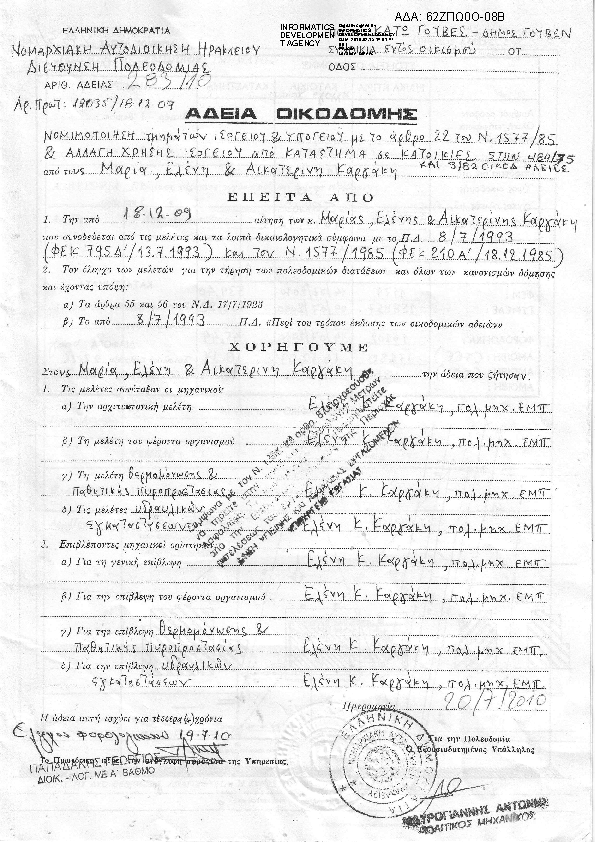 ΑΔΑ: 62ΖΠΩ00-08Β
INFORMATICS
DEVELOPMEN
T AGENCY
ΕΛΛΗΝΙΚΗ ΔΗΜΟΚΡΑΤΙΑ
ΚΑΤΩ ΓΟΥΒΕΣ - ΔΗΜΟΣ ΓΟΥΒΩΝ
ΝΟΜΑΡΧΙΑΚΗ ΑΥΤΟΔΙΟΙΚΗΣΗ ΗΡΑΚΛΕΙΟΥ
ΣΥΝΟΙΚΙΑ εντός οικισμού ΟΤ
ΔΙΕΥΘΥΝΣΗ ΠΟΛΕΟΔΟΜΙΑΣ
ΟΔΟΣ
ΑΡΙΘ. ΑΔΕΙΑΣ 283/10
Αρ. Πρωτ: 12035/18.12.09
ΑΔΕΙΑ ΟΙΚΟΔΟΜΗΣ
ΝΟΜΙΜΟΠΟΙΗΣΗ τμημάτων ΙΣΟΓΕΙΟΥ & ΥΠΟΓΕΙΟΥ με το άρθρο 22 του Ν. 1577/85
& ΑΛΛΑΓΗ ΧΡΗΣΗΣ ΙΣΟΓΕΙΟΥ από ΚΑΤΑΣΤΗΜΑ σε ΚΑΤΟΙΚΙΕΣ ΣΤΗΝ 489/75
ΚΑΙ 3/82 ΟΙΚΟΔ ΑΔΕΙΕΣ
από τους Μαρία, Ελένη & Αικατερίνη Καργάκη
ΕΠΕΙΤΑ ΑΠΟ
1. Την από 18.12.09 αίτηση των κ. Μαρίας, Ελένης & Αικατερίνης Καργάκη
που συνοδεύεται από τις μελέτες και τα λοιπά δικαιολογητικά σύμφωνα με το Π.Δ. 8/7/1993
(ΦΕΚ 795Δ'/13.7.1993) και τον Ν. 1577/1985 (ΦΕΚ 210Α'/18.12.1985)
2. Τον έλεγχο των μελετών για την τήρηση των πολεοδομικών διατάξεων και όλων των κανονισμών δόμησης
και έχοντας υπόψη:
α) Τα άρθρα 55 και 56 του Ν.Δ. 17/7/1923
β) Το από 8/7/1993 Π.Δ. «Περί του τρόπου έκδοσης των οικοδομικών αδειών»
ΧΟΡΗΓΟΥΜΕ
Στους Μαρία, Ελένη & Αικατερίνη Καργάκη την άδεια που ζήτησαν.
1. Τις μελέτες συνέταξαν οι μηχανικοί:
α) Την αρχιτεκτονική μελέτη Ελένη Κ. Καργάκη, πολ. μηχ. ΕΜΠ
β) Τη μελέτη του φέροντα οργανισμού Ελένη Κ. Καργάκη, πολ. μηχ. ΕΜΠ
γ) Τη μελέτη θερμομόνωσης &
Παθητικής Πυροπροστασίας Ελένη Κ. Καργάκη, πολ. μηχ. ΕΜΠ
δ) Τις μελέτες υδραυλικών
εγκαταστάσεων Ελένη Κ. Καργάκη, πολ. μηχ. ΕΜΠ
2. Επιβλέποντες μηχανικοί ορίστηκαν
α) Για τη γενική επίβλεψη Ελένη Κ. Καργάκη, πολ. μηχ. ΕΜΠ
β) Για την επίβλεψη του φέροντα οργανισμού Ελένη Κ. Καργάκη, πολ. μηχ. ΕΜΠ
γ) Για την επίβλεψη θερμομόνωσης &
Παθητικής Πυροπροστασίας Ελένη Κ. Καργάκη, πολ. μηχ. ΕΜΠ
δ) Για την επίβλεψη υδραυλικών
εγκαταστάσεων Ελένη Κ. Καργάκη, πολ. μηχ. ΕΜΠ
Ημερομηνία 20/7/2010
Η άδεια αυτή ισχύει για τέσσερα(4)χρόνια
19-7-10
Για την Πολεοδομία
Ο Εξουσιοδοτημένος Υπάλληλος
της Υπηρεσίας,
ΔΙΟΙΚ. - ΛΟΓ. ΜΕ Α' ΒΑΘΜΟ
ΜΑΥΡΟΓΙΑΝΝΗΣ ΑΝΤΩΝΗΣ
ΠΟΛΙΤΙΚΟΣ ΜΗΧΑΝΙΚΟΣ